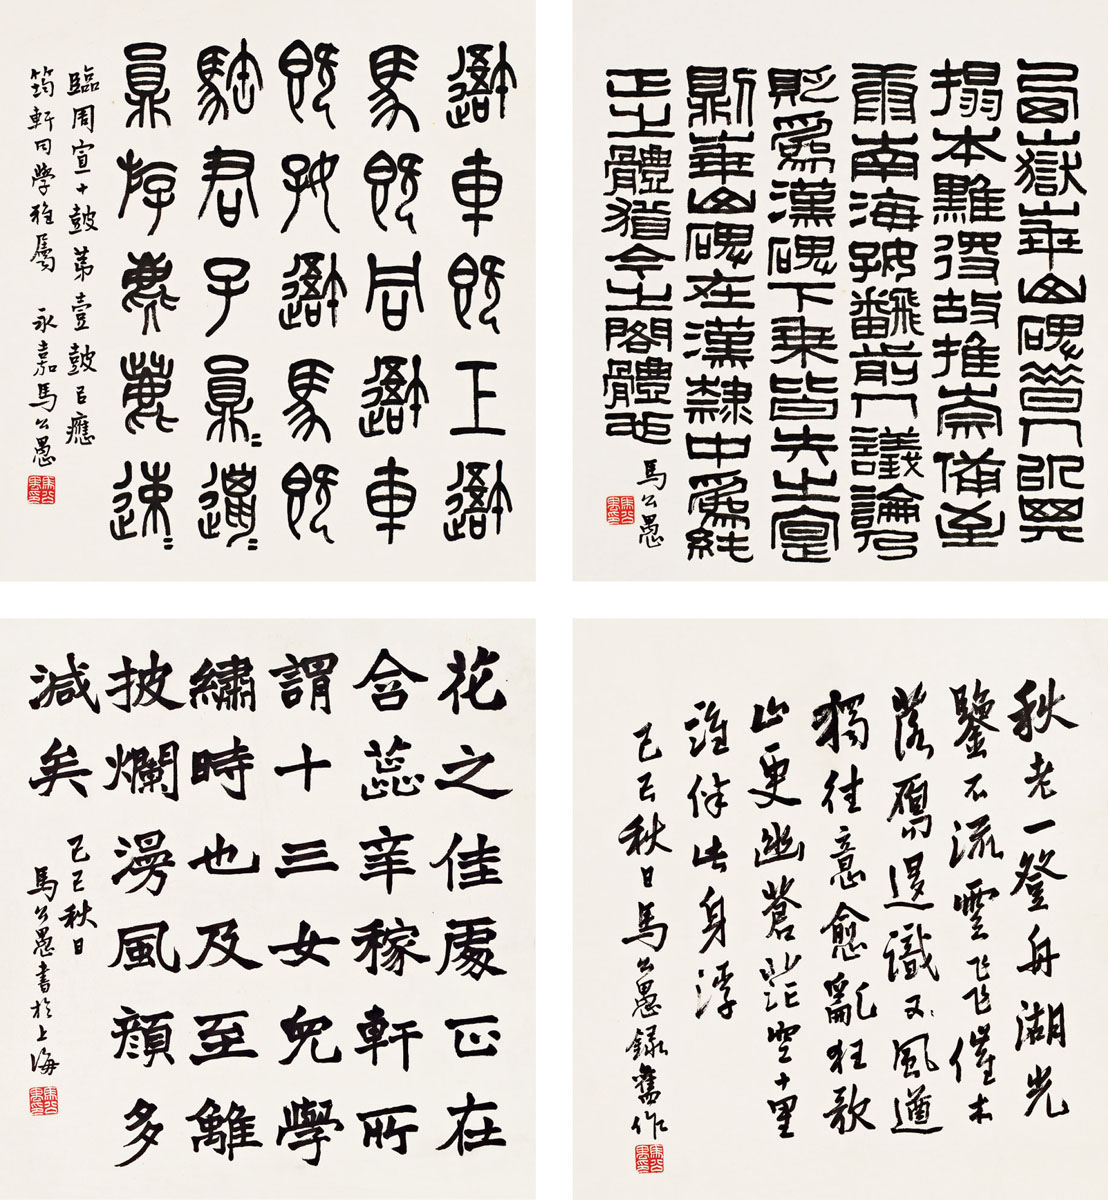 西嶽華山碑昔人所
搨本難得故推崇備至
康南海好翻前人議論乃
貶為漢碑下乘皆失之
則華山碑在漢隸中為純
正之體猶今之閣體也
馬公愚
吾車既工吾
馬既同吾車
既好吾馬既
君子員=邋=
員斿麀鹿速=
臨周宣十鼓第壹鼓㠯應
筠軒同學雅屬 永嘉馬公愚
秋老一登舟湖光
鑒不流雲飛飛催木
落雁過識又風遒
獨往意愈亂狂歌
山更幽蒼茫空十里
誰伴此身浮
己巳秋日馬公愚錄舊作
花之佳處正在
含蕊辛稼軒所
謂十三女兒學
繡時也及至離
披爛漫風顏多
減矣
己巳秋日
馬公愚書於上海